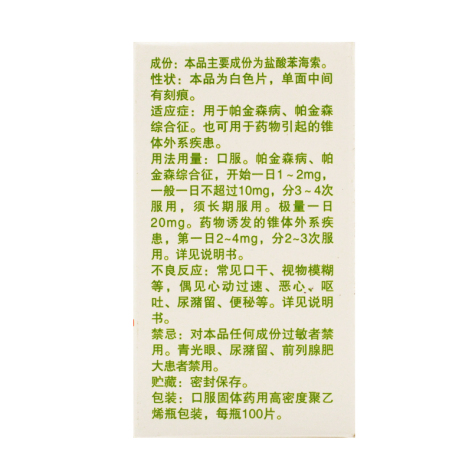 成份：本品主要成份为盐酸苯海索。
性状：本品为白色片，单面中间
有刻痕。
适应症：用于帕金森病、帕金森
综合征。也可用于药物引起的锥
体外系疾患。
用法用量：口服。帕金森病、帕
金森综合征，开始一日1~2mg，
一般一日不超过10mg，分3~4次
服用，须长期服用。极量一日
20mg。药物诱发的锥体外系疾
患，第一日2~4mg，分2~3次服
用。详见说明书。
不良反应：常见口干、视物模糊
等，偶见心动过速、恶心、呕
吐、尿潴留、便秘等。详见说明
书。
禁忌：对本品任何成份过敏者禁
用。青光眼、尿潴留、前列腺肥
大患者禁用。
贮藏：密封保存。
包装：口服固体药用高密度聚乙
烯瓶包装，每瓶100片。